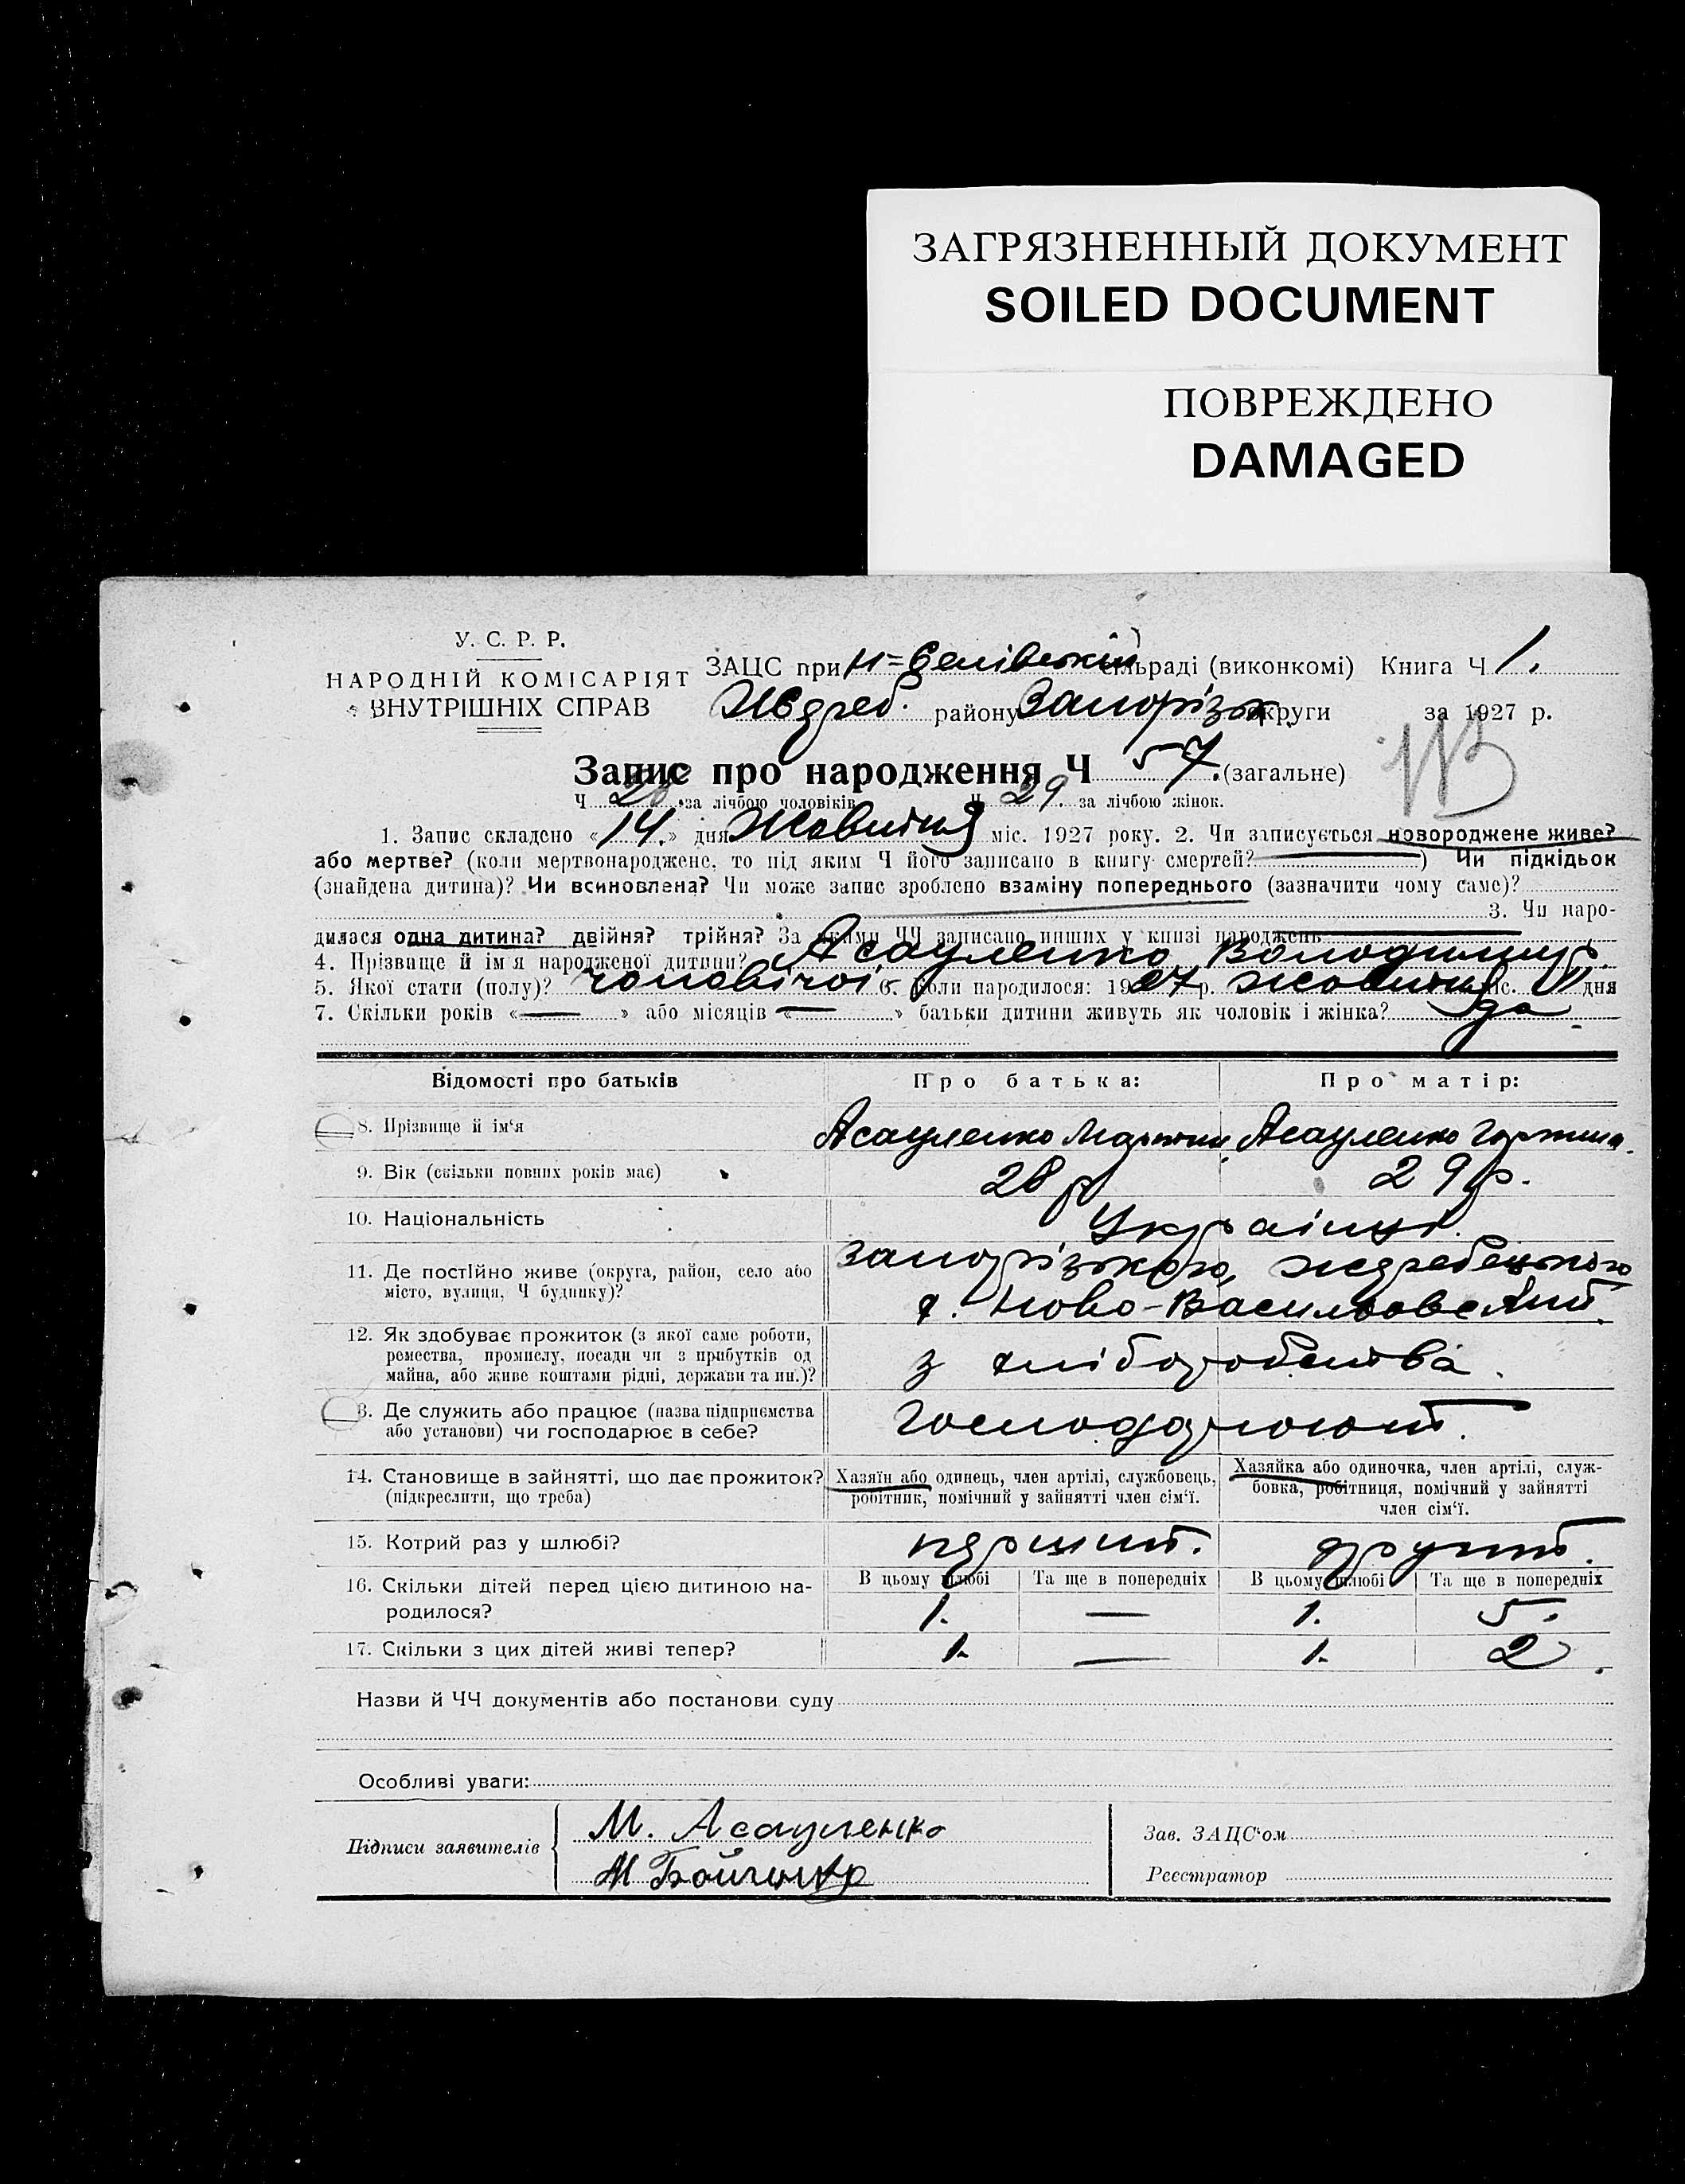 ЗАГРЯЗНЕННЫЙ ДОКУМЕНТ
SOILED DOCUMENT
ПОВРЕЖДЕНО
DAMAGED
У. С. Р. Р.
НАРОДНІЙ КОМІСАРІЯТ
ВНУТРІШНІХ СПРАВ
ЗАЦС при Н=Селівській сільраді (виконкомі) Книга Ч 1.
Жереб. району Запорізьк. округи за 1927 р.
Запис про народження Ч 57. (загальне)
Ч 28 за лічбою чоловіків Ч 29. за лічбою жінок.
1. Запис складено «14.» дня Жовтня міс. 1927 року. 2. Чи записується новороджене живе?
або мертве? (коли мертвонароджене, то під яким Ч його записано в книгу смертей? —) Чи підкідьок
(знайдена дитина)? Чи всиновлена? Чи може запис зроблено взаміну попереднього (зазначити чому саме)?
3. Чи наро-
дилася одна дитина? двійня? трійня? За якими ЧЧ записано инших у книзі народжень —
4. Прізвище й ім'я народженої дитини? Асауленко Володимир.
5. Якої стати (полу)? чоловічої 6. Коли народилося: 1927 р. жовтня міс. 11 дня
7. Скільки років «—» або місяців «—» батьки дитини живуть як чоловік і жінка? да
Відомості про батьків Про батька: Про матір:
8. Прізвище й ім'я Асауленко Мартин. Асауленко
9. Вік (скільки повних років має) 28 р 29 р.
10. Національність Українці.
11. Де постійно живе (округа, район, село або
місто, вулиця, Ч будинку)?
Запорізького, жеребецького
х. Ново-Васильовский.
12. Як здобуває прожиток (з якої саме роботи,
ремества, промислу, посади чи з прибутків од
майна, або живе коштами рідні, держави та ин.)?
з хліборобства.
13. Де служить або працює (назва підприємства
або установи) чи господарює в себе?
Господарюют.
14. Становище в зайнятті, що дає прожиток?
(підкреслити, що треба)
Хазяїн або одинець, член артілі, службовець,
робітник, помічний у зайнятті член сім'ї.
Хазяйка або одиночка, член артілі, служ-
бовка, робітниця, помічний у зайнятті
член сім'ї.
15. Котрий раз у шлюбі? перший. другий.
16. Скільки дітей перед цією дитиною на-
родилося?
В цьому шлюбі Та ще в попередніх В цьому шлюбі Та ще в попередніх
1. — 1. 5.
17. Скільки з цих дітей живі тепер? 1. — 1. 2.
Назви й ЧЧ документів або постанови суду
Особливі уваги:
Підписи заявителів
М. Асауленко
М Бойченко
Зав. ЗАЦС'ом
Реєстратор